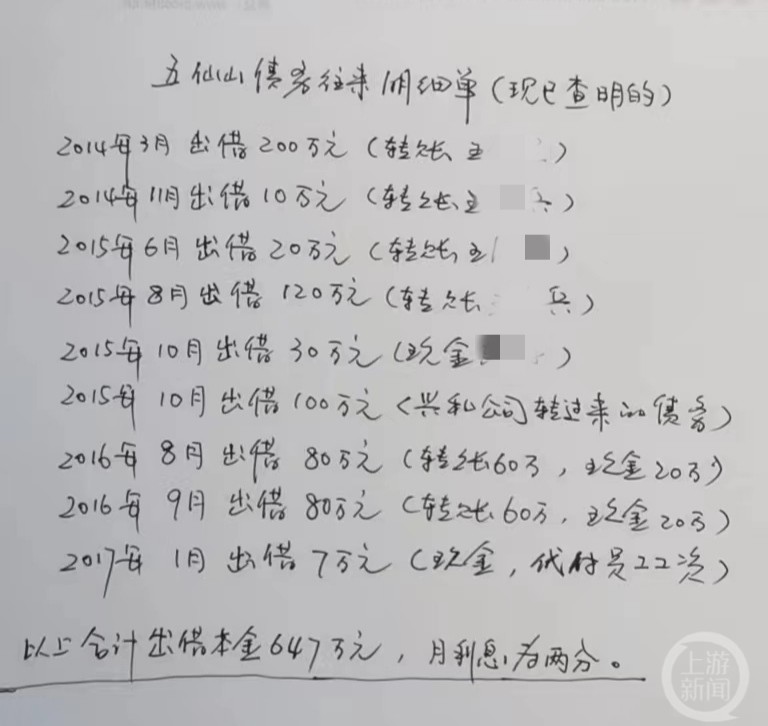 五仙山债务往来明细单（现已查明的）
2014年3月出借200万元（转账、王）
2014年11月出借10万元（转账、王 兵）
2015年6月出借20万元（转账、王）
2015年8月出借120万元（转账、 兵）
2015年10月出借30万元（现金）
2015年10月出借100万元（兴和公司转过来的债务）
2016年8月出借80万元（转账60万，现金20万）
2016年9月出借80万元（转账60万，现金20万）
2017年1月出借7万元（现金，代付员工工资）
以上合计出借本金647万元，月利息为两分。
上游新闻